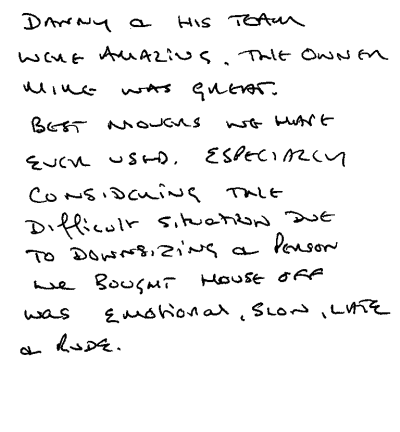 DANNY & HIS TEAM
WERE AMAZING. THE OWNER
MIKE WAS GREAT.
BEST MOVERS WE HAVE
EVER USED. ESPECIALLY
CONSIDERING THE
Difficult SITUATION DUE
TO DOWNSIZING & PERSON
WE BOUGHT HOUSE OFF
WAS EMOTIONAL, SLOW, LATE
& RUDE.